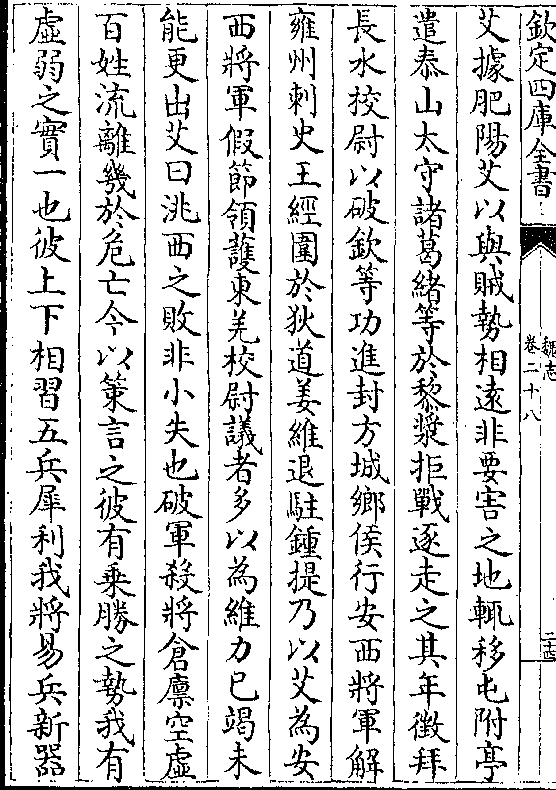 欽定四庫全書
魏志
卷二十八
二十四
艾據肥陽艾以與賊勢相遠非要害之地輒移屯附亭
遣泰山太守諸葛緒等於黎漿拒戰逐走之其年徵拜
長水校尉以破欽等功進封方城鄉侯行安西將軍解
雍州刺史王經圍於狄道姜維退駐鍾提乃以艾為安
西將軍假節領護東羌校尉議者多以為維力已竭未
能更出艾曰洮西之敗非小失也破軍殺將倉廩空虛
百姓流離幾於危亡今以策言之彼有乗勝之勢我有
虛弱之實一也彼上下相習五兵犀利我將易兵新器